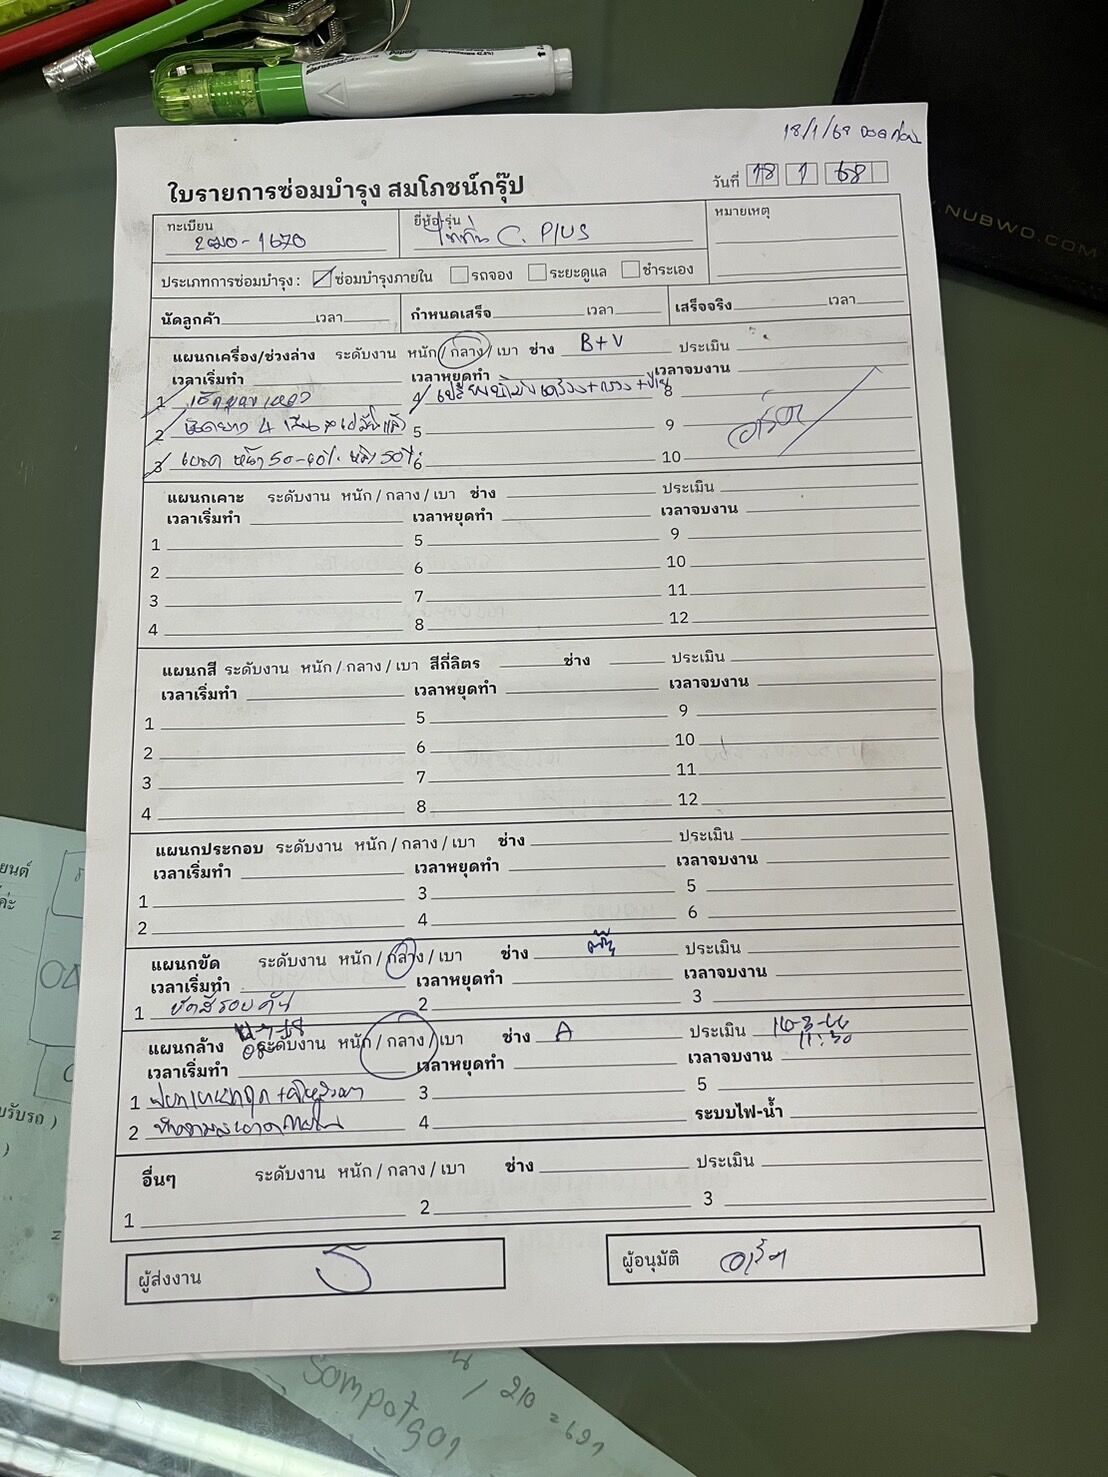 18/1/68
ใบรายการซ่อมบำรุง สมโภชน์กรุ๊ป
วันที่ 18 1 68
ทะเบียน
2ฒอ-1670
ยี่ห้อ-รุ่น
C. PlUS
หมายเหตุ
ประเภทการซ่อมบำรุง : ซ่อมบำรุงภายใน รถจอง ระยะดูแล ชำระเอง
นัดลูกค้า เวลา กำหนดเสร็จ เวลา เสร็จจริง เวลา
แผนกเครื่อง/ช่วงล่าง ระดับงาน หนัก / กลาง / เบา ช่าง B+V ประเมิน
เวลาเริ่มทำ เวลาหยุดทำ เวลาจบงาน
1 4 8
2 4 5 9
3 เบรค หน้า 50-40% หลัง 50% 6 10
แผนกเคาะ ระดับงาน หนัก / กลาง / เบา ช่าง ประเมิน
เวลาเริ่มทำ เวลาหยุดทำ เวลาจบงาน
1 5 9
2 6 10
3 7 11
4 8 12
แผนกสี ระดับงาน หนัก / กลาง / เบา สีกี่ลิตร ช่าง ประเมิน
เวลาเริ่มทำ เวลาหยุดทำ เวลาจบงาน
1 5 9
2 6 10
3 7 11
4 8 12
แผนกประกอบ ระดับงาน หนัก / กลาง / เบา ช่าง ประเมิน
เวลาเริ่มทำ เวลาหยุดทำ เวลาจบงาน
1 3 5
2 4 6
แผนกขัด ระดับงาน หนัก / กลาง / เบา ช่าง ประเมิน
เวลาเริ่มทำ เวลาหยุดทำ เวลาจบงาน
1 ขัดสีรอบคัน 2 3
แผนกล้าง ระดับงาน หนัก / กลาง / เบา ช่าง A ประเมิน
11:30
เวลาเริ่มทำ เวลาหยุดทำ เวลาจบงาน
1 3 5
2 ทำความสะอาดภายใน 4 ระบบไฟ-น้ำ
อื่นๆ ระดับงาน หนัก / กลาง / เบา ช่าง ประเมิน
1 2 3
ผู้ส่งงาน
ผู้อนุมัติ
NUBWO.COM